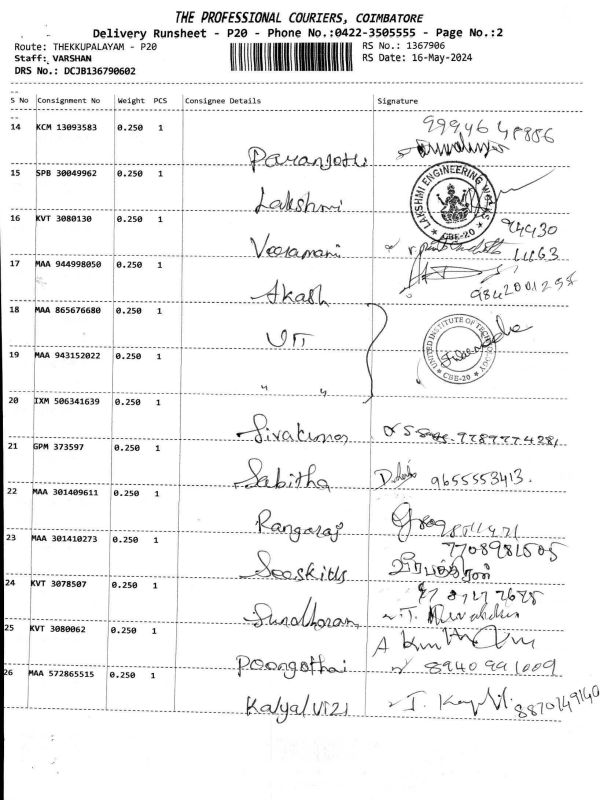 THE PROFESSIONAL COURIERS, COIMBATORE
Delivery Runsheet - P20 - Phone No.:0422-3505555 - Page No.:2
Route: THEKKUPALAYAM - P20 RS No.: 1367906
Staff: VARSHAN RS Date: 16-May-2024
DRS No.: DCJB136790602
S No Consignment No Weight PCS Consignee Details Signature
14 KCM 13093583 0.250 1 99946 48886
Paranjothi
15 SPB 30049962 0.250 1 LAKSHMI ENGINEERING WORKS CBE-20
Lakshmi
16 KVT 3080130 0.250 1 94430
Veeramani 4463
17 MAA 944998050 0.250 1
Akash 9842001255
18 MAA 865676680 0.250 1
UIT UNITED INSTITUTE OF TECHNOLOGY CBE-20
19 MAA 943152022 0.250 1
" "
20 IXM 506341639 0.250 1
Sivakumar
21 GPM 373597 0.250 1
Sabitha 9655553413.
22 MAA 301409611 0.250 1
Rangaraj
23 MAA 301410273 0.250 1 7708981505
24 KVT 3078507 0.250 1
25 KVT 3080062 0.250 1
Poongothai 8940991009
26 MAA 572865515 0.250 1
Kalyalvizi 8870149140